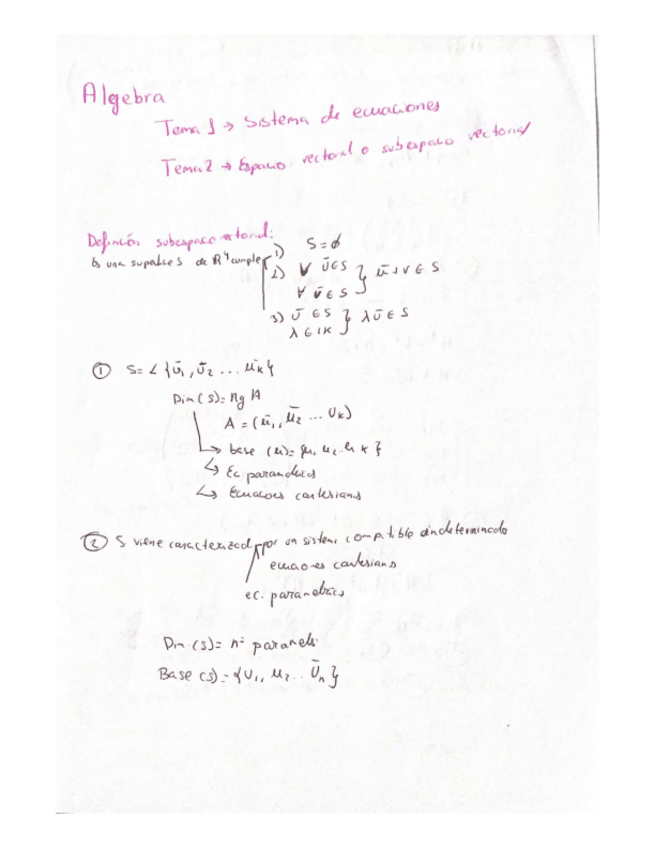 Algebra
Tema 1 → Sistema de ecuaciones
Tema 2 → Espacio vectorial o subespacio vectorial
Definición subespacio vectorial:
Es una S de R⁴ cumple
1) S = ϕ
2) ∀ ū ∈ S
∀ v̄ ∈ S } ū + v ∈ S
3) ū ∈ S
λ ∈ IK } λū ∈ S
① S = L {ū₁, ū₂ ... ūₖ}
Dim (S) = Rg A
A = (ū₁, ū₂ ... Uₖ)
↳ base (u) = {u₁, u₂ .. uₖ}
↳ Ec parametrics
↳ Ecuaciones cartesians
② S viene caracterizado por un sistem compatible indeterminado
ecuaciones cartesians
ec. parametrics
Dim (S) = nº parametr.
Base (S) = {U₁, u₂ .. Ūₙ}